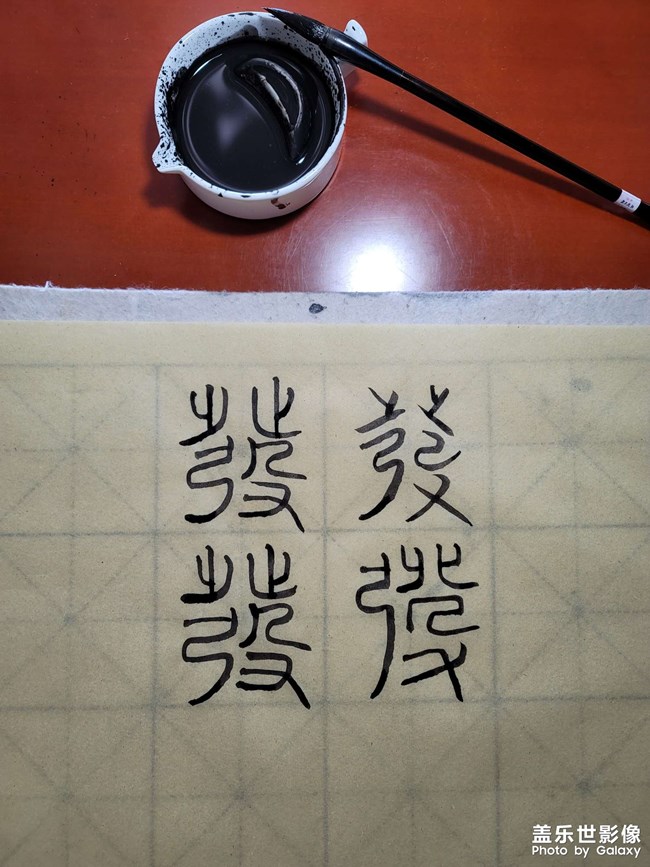 發發
發發
盖乐世影像
Photo by Galaxy